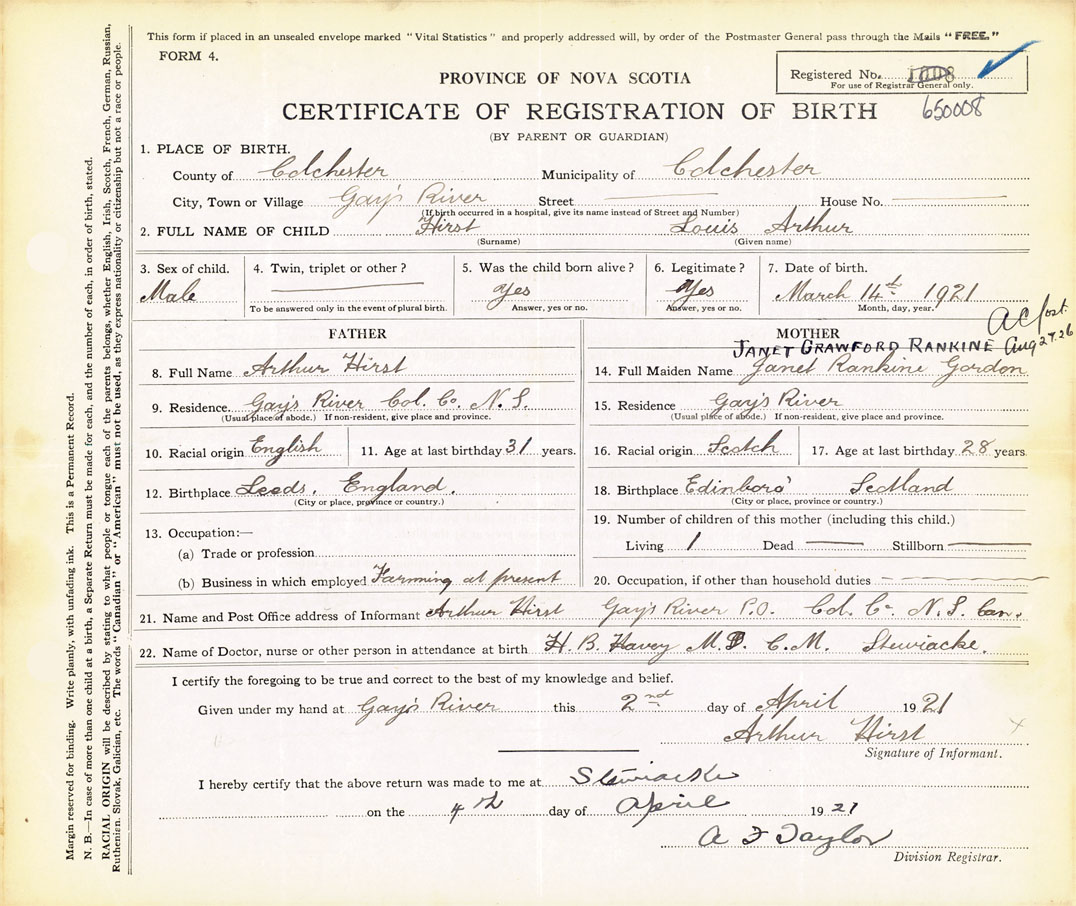 This form if placed in an unsealed envelope marked "Vital Statistics" and properly addressed will, by order of the Postmaster General pass through the Mails "FREE."
FORM 4.
PROVINCE OF NOVA SCOTIA
Registered No.
For use of Registrar General only.
650008
CERTIFICATE OF REGISTRATION OF BIRTH
(BY PARENT OR GUARDIAN)
1. PLACE OF BIRTH.
County of Colchester Municipality of Colchester
City, Town or Village Gay's River Street House No.
(If birth occurred in a hospital, give its name instead of Street and Number)
2. FULL NAME OF CHILD Hirst Louis Arthur
(Surname) (Given name)
3. Sex of child. 4. Twin, triplet or other? 5. Was the child born alive? 6. Legitimate? 7. Date of birth.
Male Yes Yes March 14th 1921
To be answered only in the event of plural birth. Answer, yes or no. Answer, yes or no. Month, day, year.
FATHER
8. Full Name Arthur Hirst
9. Residence Gay's River Col. Co. N. S.
(Usual place of abode.) If non-resident, give place and province.
10. Racial origin English 11. Age at last birthday 31 years.
12. Birthplace Leeds, England.
(City or place, province or country.)
13. Occupation:—
(a) Trade or profession
(b) Business in which employed Farming at present
MOTHER
JANET CRAWFORD RANKINE Aug 27. 26
14. Full Maiden Name Janet Rankine Gordon
15. Residence Gay's River
(Usual place of abode.) If non-resident, give place and province.
16. Racial origin Scotch 17. Age at last birthday 28 years
18. Birthplace Edinboro' Scotland
(City or place, province or country.)
19. Number of children of this mother (including this child.)
Living 1 Dead Stillborn
20. Occupation, if other than household duties
21. Name and Post Office address of Informant Arthur Hirst Gay's River P.O. Col. Co. N. S. Can.
22. Name of Doctor, nurse or other person in attendance at birth H. B. Havey M.D. C.M. Stewiacke.
I certify the foregoing to be true and correct to the best of my knowledge and belief.
Given under my hand at Gay's River this 2nd day of April 1921
Arthur Hirst
Signature of Informant.
I hereby certify that the above return was made to me at Stewiacke
on the 4th day of April 1921
A F Taylor
Division Registrar.
Margin reserved for binding. Write plainly, with unfading ink. This is a Permanent Record.
N. B.—In case of more than one child at a birth, a Separate Return must be made for each, and the number of each, in order of birth, stated.
RACIAL ORIGIN will be described by stating to what people or tongue each of the parents belongs, whether English, Irish, Scotch, French, German, Russian,
Ruthenian, Slovak, Galician, etc. The words "Canadian" or "American" must not be used, as they express nationality or citizenship but not a race or people.